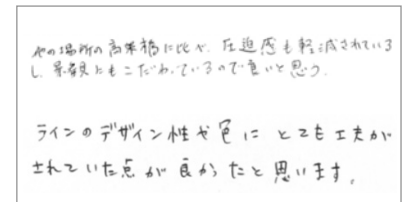 他の場所の高架橋に比べ、圧迫感も軽減されている
し、景観ともこだわっているので良いと思う。
ラインのデザイン性や色にとても工夫が
されていた点が良かったと思います。